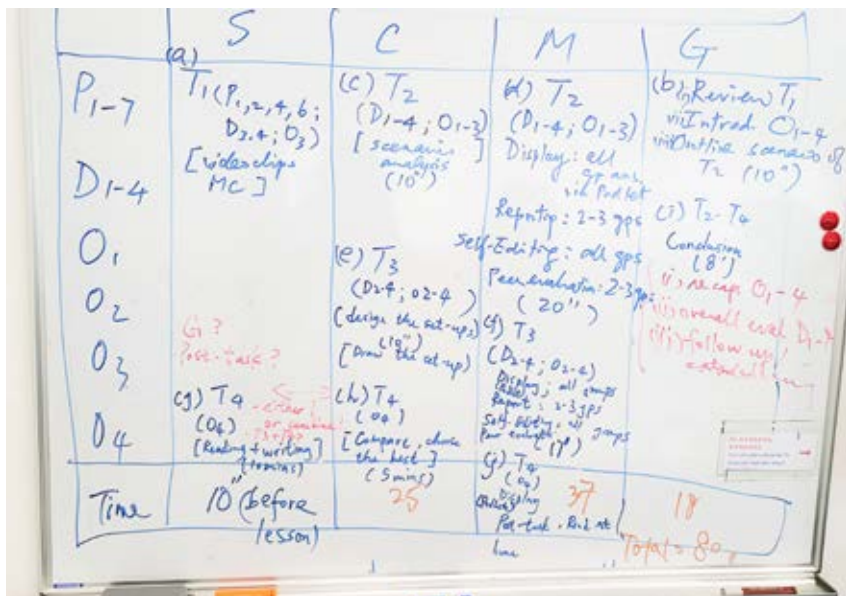 S C M G
P1-7
D1-4
O1
O2
O3
O4
Time
(a)
T1 (P1,2,4,6;
D2-4; O3)
[videoclips
MC]
G?
Post-task?
(g) T4
(O4)
[Reading + writing]
(10mins)
10" (before
lesson)
(c) T2
(D1-4; O1-3)
[scenario
analysis
(10")
(e) T3
(D2-4; O2-4)
[design the set-ups]
(10")
[Draw the set-up]
(h) T4
(O4)
[Compare, choose
the best]
(5mins)
25
(d) T2
(D1-4; O1-3)
Display: all
via Padlet
Reporting: 2-3 gps
Self-Editing: all gps
Peer evaluation: 2-3 gps
(20")
(f) T3
(D2-4; O2-4)
Display: all groups
Report: 2-3 gps
Self-Editing: all groups
(17")
(j) T4
(O4)
Display
37
(b) i) Review T1
ii) Introd. O1-4
iii) Outline scenario of
T2 (10")
(i) T2-T4
Conclusion
(8')
i) recap O1-4
ii) overall eval D1-4
iii) follow up/
18
Total = 80